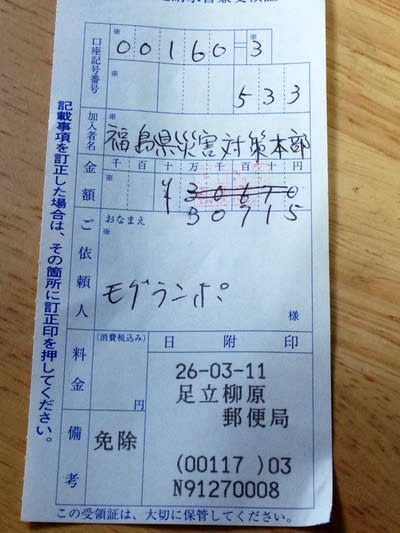 口座記号番号
※
00160-3
※
533
加入者名
※
福島県災害対策本部
金額
千 百 十 万 千 百 十 円
※
¥30670
30715
ご依頼人
おなまえ
※
モグランポ
様
料金
(消費税込み)
円
日附印
26-03-11
足立柳原
郵便局
(00117 )03
N91270008
備考
免除
記載事項を訂正した場合は、その箇所に訂正印を押してください。
この受領証は、大切に保管してください。